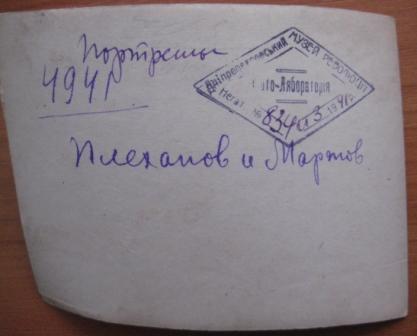 Портреты
1941
Дніпропетровський МУЗЕЙ РЕВОЛЮЦІЇ
Фото-Лабораторія
Негат. № 834 3 1941 р.
Плеханов и Мартов